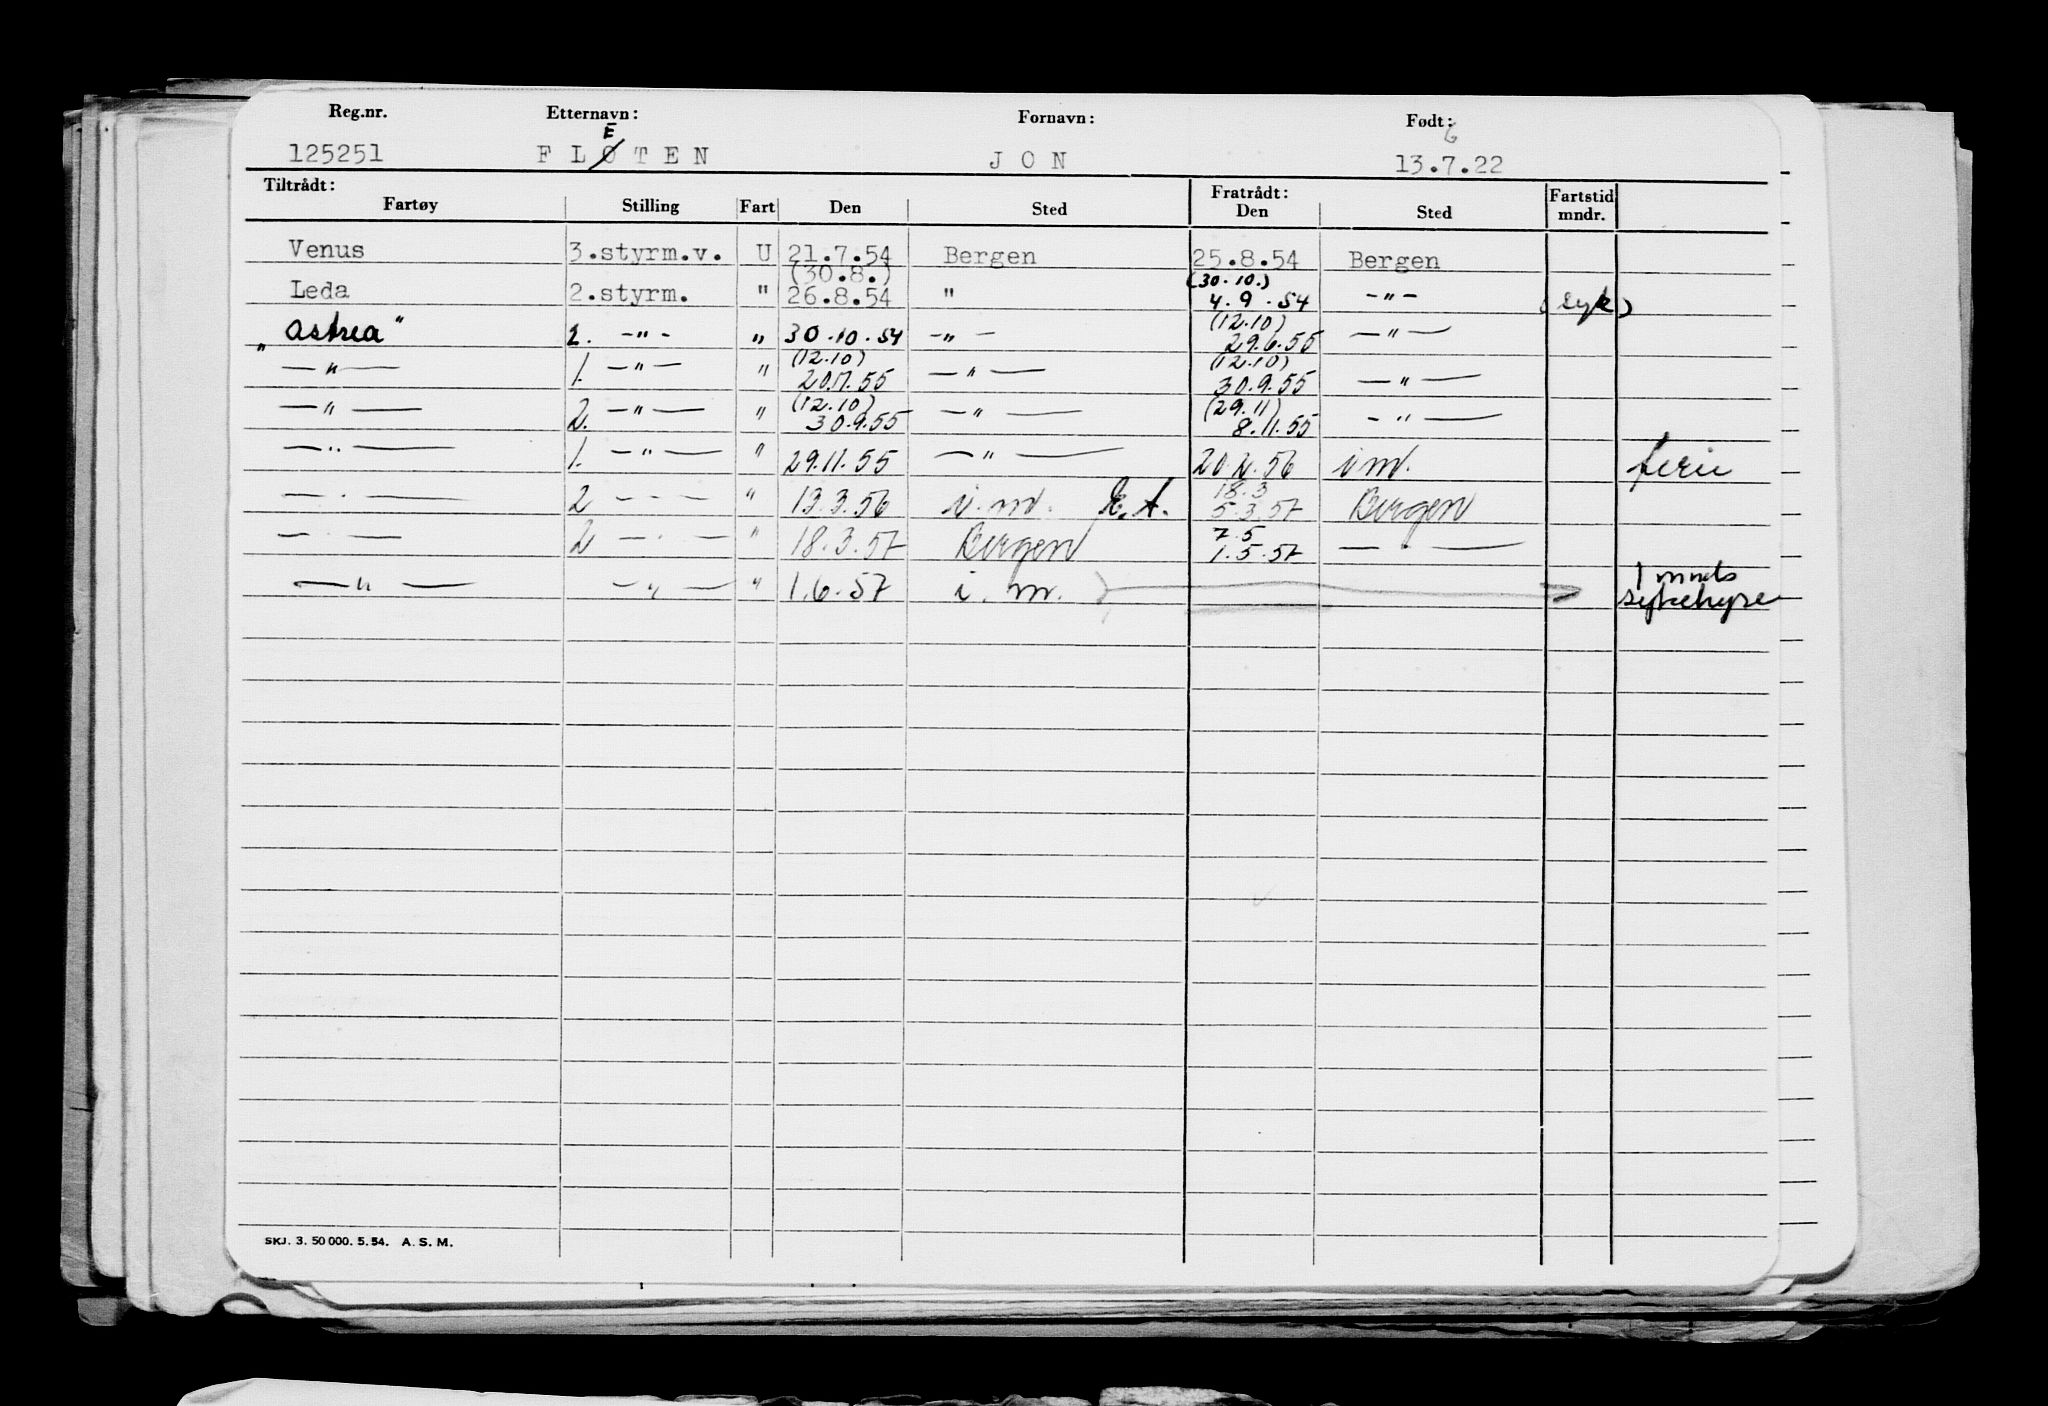 Reg.nr. Etternavn: Fornavn: Født:
E 6
125251 FLØTEN JON 13.7.22
Tiltrådt: Fratrådt: Fartstid
Fartøy Stilling Fart Den Sted Den Sted mndr.
Venus 3.styrm.v. U 21.7.54 Bergen 25.8.54 Bergen
(30.8.) (30.10.)
Leda 2.styrm. " 26.8.54 " 4.9.54 -"- (syk)
(12.10)
"Astrea" 2. -"- " 30.10.54 -"- 29.6.55 -"-
(12.10) (12.10)
-"- 1. -"- " 20.7.55 -"- 30.9.55 -"-
(12.10) (29.11)
-"- 2. -"- " 30.9.55 -"- 8.11.55 -"-
-"- 1. -"- " 29.11.55 -"- 20.2.56 i m. ferie
18.3
-"- 2 -"- " 13.3.56 i. m. 5.3.57 Bergen
7.5
-"- 2 -"- " 18.3.57 Bergen 1.5.57 -"-
-"- -"- " 1.6.57 i. m. 1 mnets
sykehyre
SKJ. 3. 50 000. 5. 54. A. S. M.